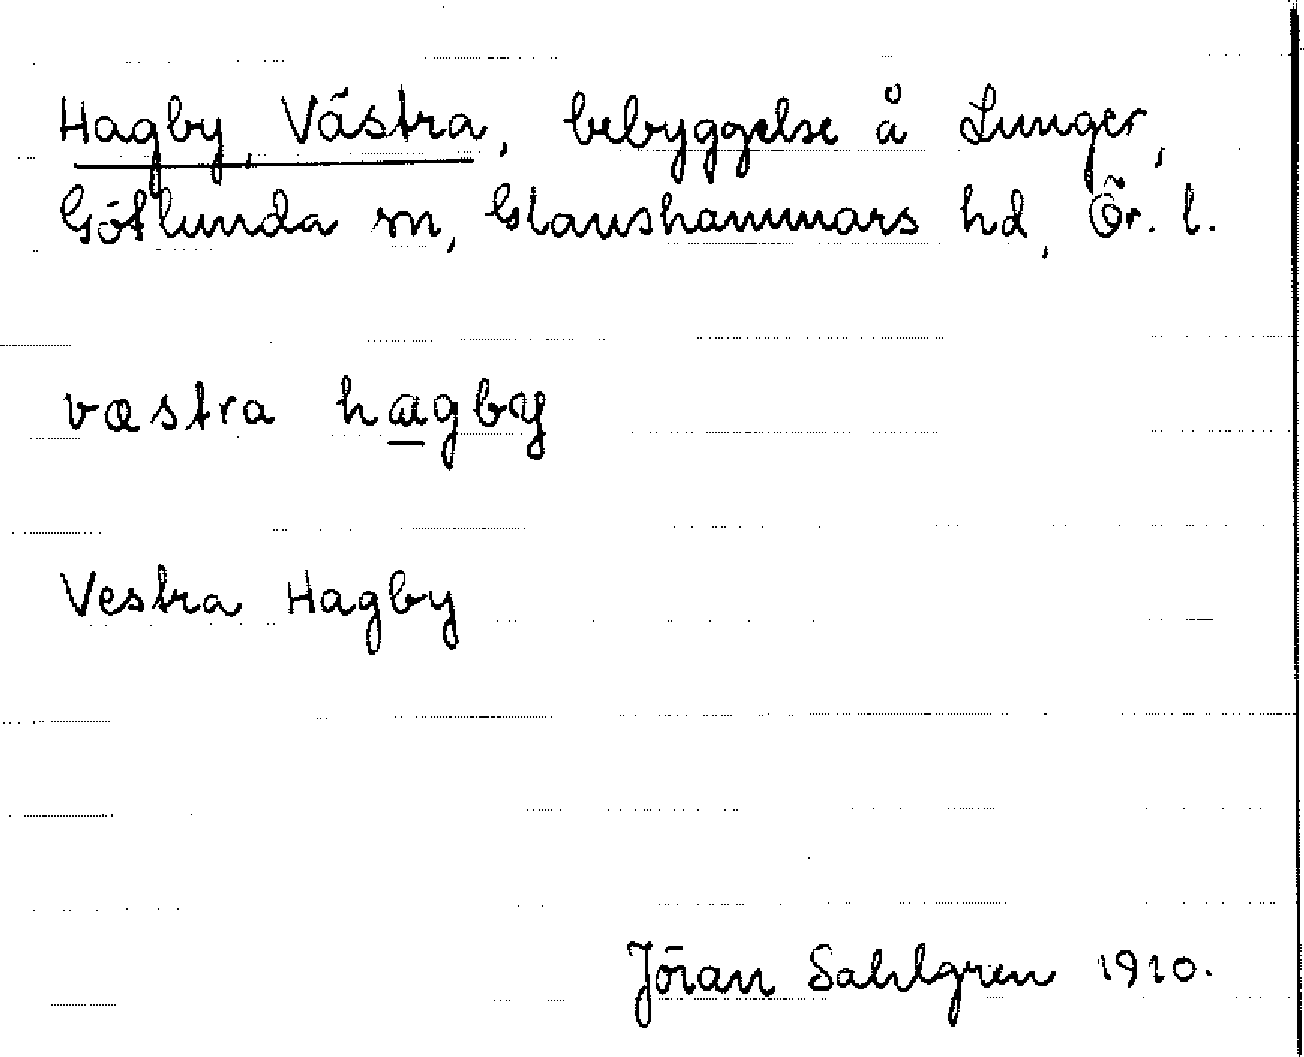 Hagby, Västra, bebyggelse å Lunger,
Götlunda sn, Glanshammars hd, Ör. l.
væstra hagby
Vestra Hagby
Jöran Sahlgren 1910.